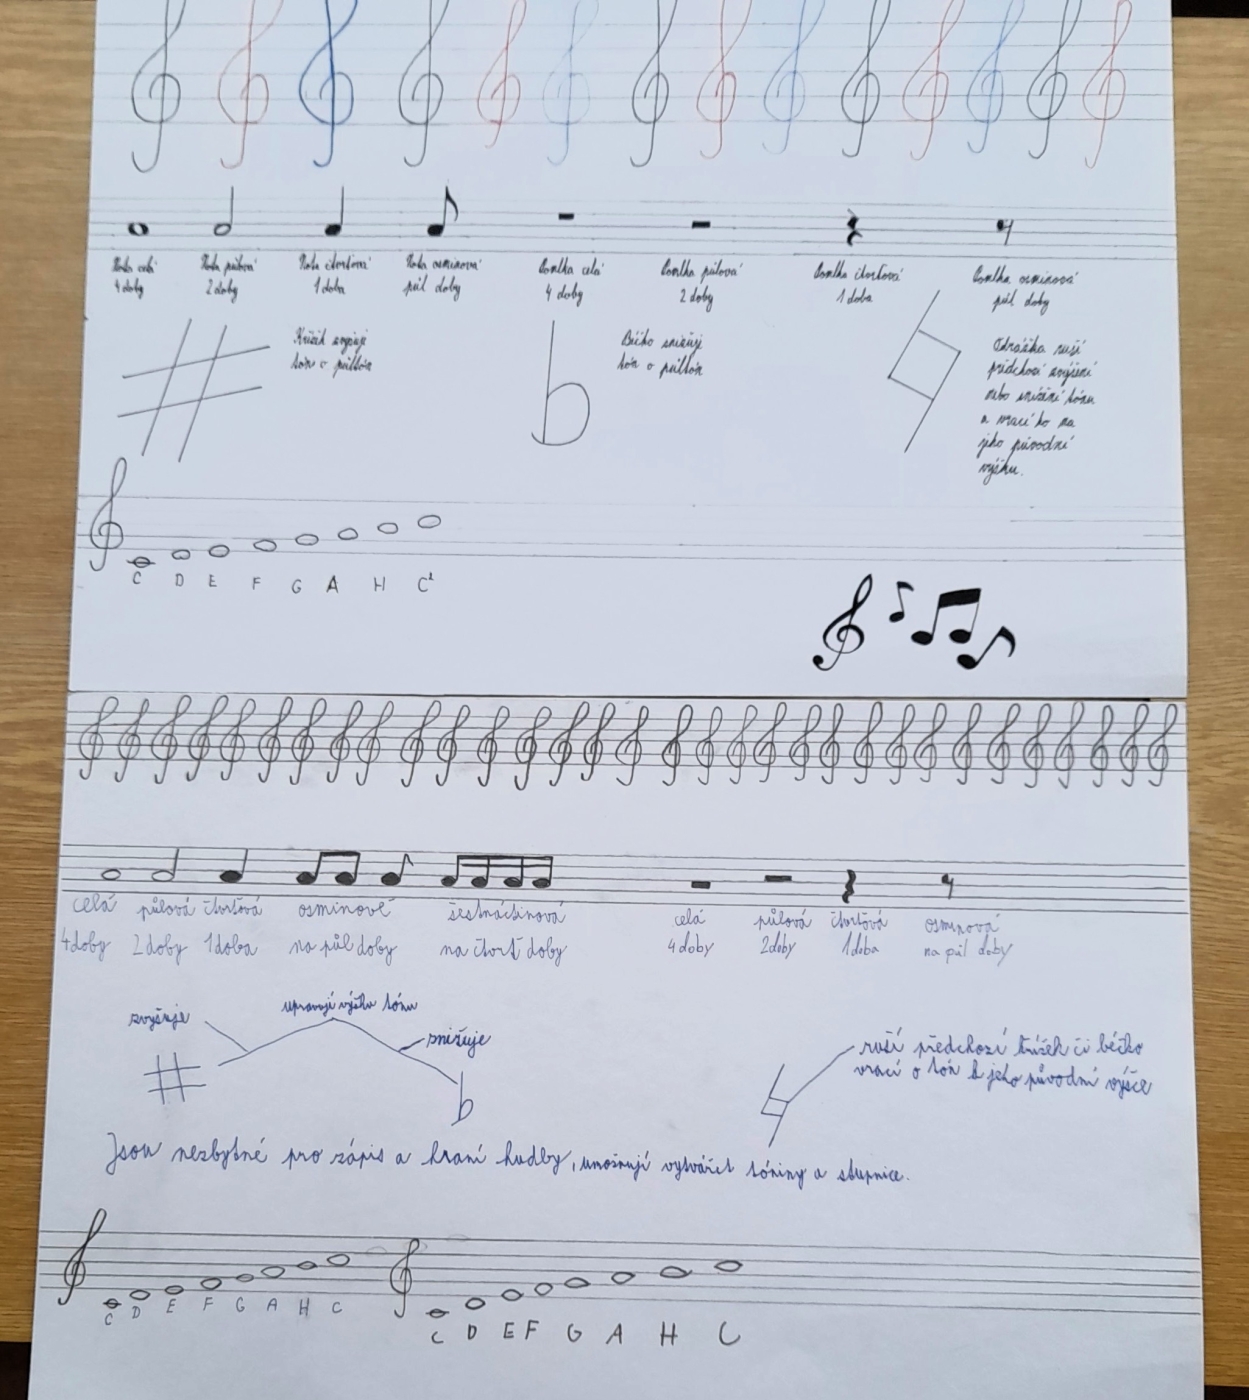 Nota celá
Nota půlová
Nota čtvrťová
Nota osminová
Pomlka celá
Pomlka půlová
Pomlka čtvrťová
Pomlka osminová
4 doby
2 doby
1 doba
půl doby
4 doby
2 doby
1 doba
půl doby
Křížek zvyšuje
tón o půltón
Béčko snižuje
tón o půltón
Odrážka ruší
předchozí zvýšení
nebo snížení tónu
a vrací ho na
jeho původní
výšku.
C D E F G A H C¹
celá
půlová
čtvrťová
osminové
šestnáctinová
celá
půlová
čtvrťová
osminová
4 doby
2 doby
1 doba
na půl doby
na čtvrť doby
4 doby
2 doby
1 doba
na půl doby
zvyšuje
upravují výšku tónu
snižuje
ruší předchozí křížek či béčko
vrací o tón k jeho původní výšce
Jsou nezbytné pro zápis a hraní hudby, umožnují vytvářet tóniny a stupnice.
C D E F G A H C
C D E F G A H C